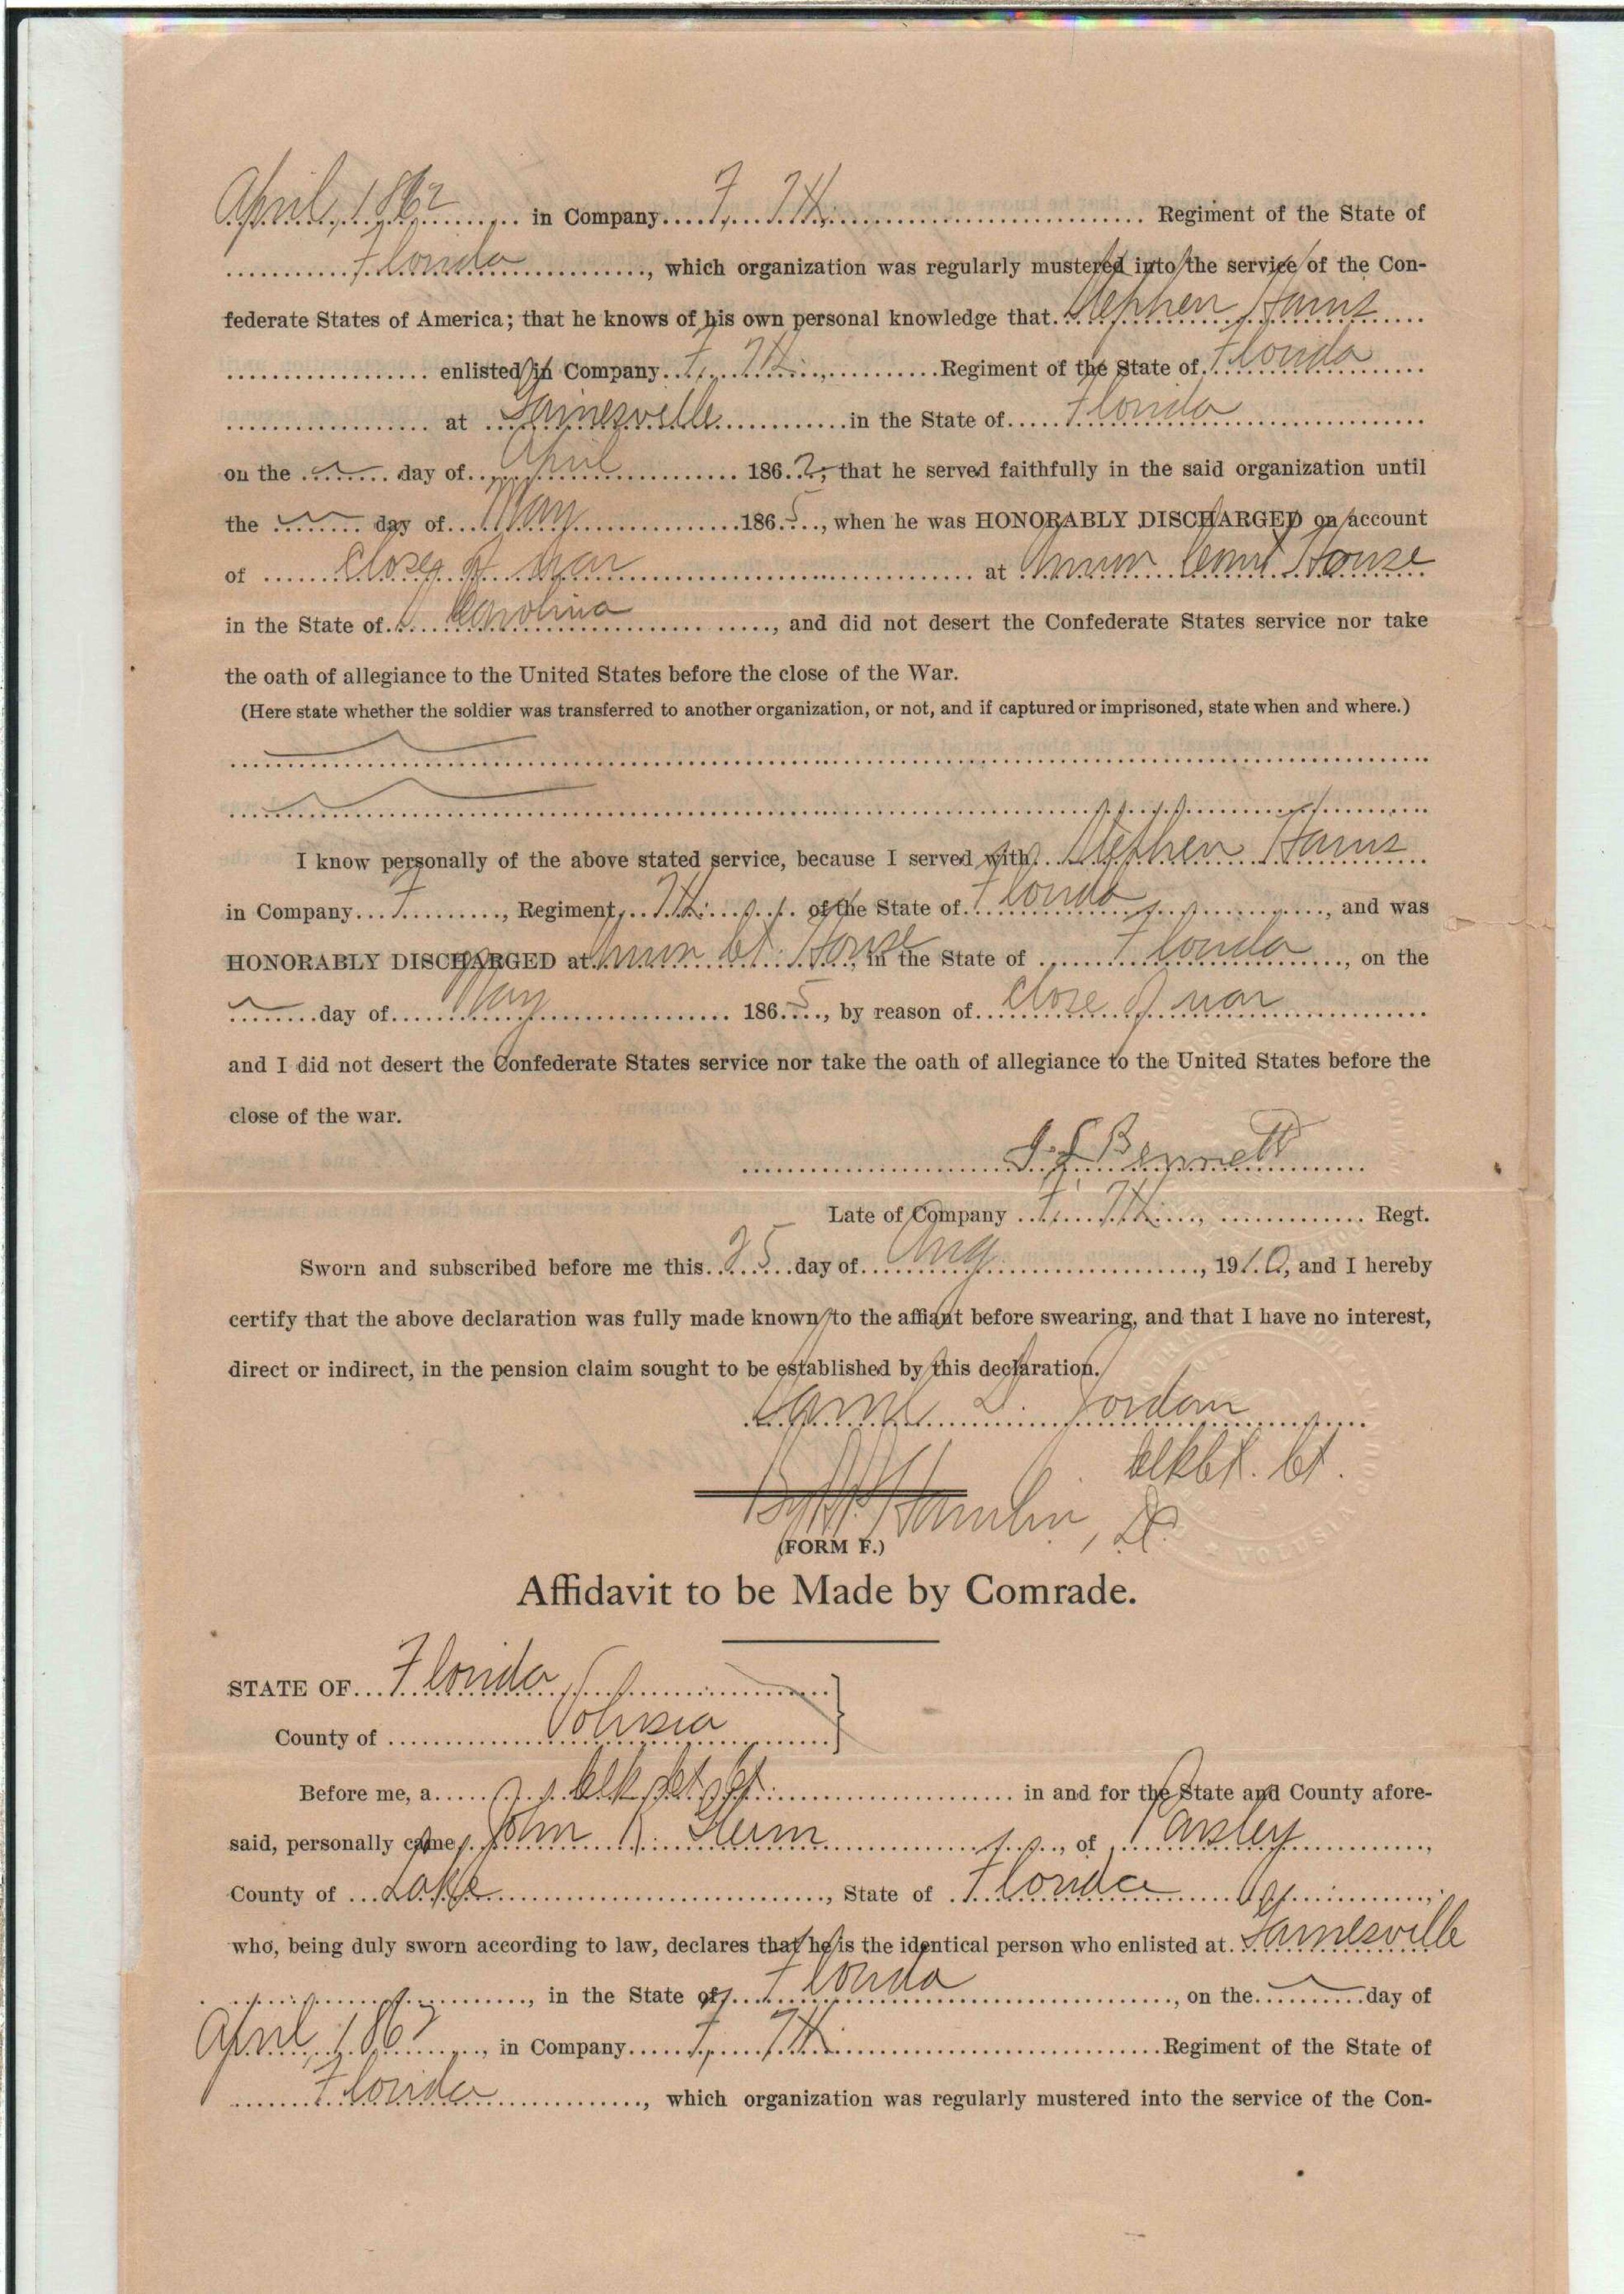 April, 1862, in Company F, 7th Regiment of the State of
Florida, which organization was regularly mustered into the service of the Con-
federate States of America; that he knows of his own personal knowledge that Stephen
enlisted in Company F, 7th, Regiment of the State of Florida
at Gainesville in the State of Florida
on the day of April 1862; that he served faithfully in the said organization until
the day of May 1865, when he was HONORABLY DISCHARGED on account
of Close of War at Court House
in the State of Carolina, and did not desert the Confederate States service nor take
the oath of allegiance to the United States before the close of the War.
(Here state whether the soldier was transferred to another organization, or not, and if captured or imprisoned, state when and where.)
I know personally of the above stated service, because I served with Stephen
in Company F, Regiment, 7th of the State of Florida, and was
HONORABLY DISCHARGED at Ct. House, in the State of Florida, on the
day of May 1865, by reason of Close of war
and I did not desert the Confederate States service nor take the oath of allegiance to the United States before the
close of the war.
Bennett
Late of Company F, 7th, Regt.
Sworn and subscribed before me this 25 day of Aug, 1910, and I hereby
certify that the above declaration was fully made known to the affiant before swearing, and that I have no interest,
direct or indirect, in the pension claim sought to be established by this declaration.
Saml D. Jordan
Clk Ct. Ct.
By Hamlin, DC
(FORM F.)
Affidavit to be Made by Comrade.
STATE OF Florida
County of Volusia
Before me, a Clk Ct. Ct. in and for the State and County afore-
said, personally came John of Paisley,
County of Lake, State of Florida,
who, being duly sworn according to law, declares that he is the identical person who enlisted at Gainesville
, in the State of Florida, on the day of
April, 1862, in Company F, 7th Regiment of the State of
Florida, which organization was regularly mustered into the service of the Con-